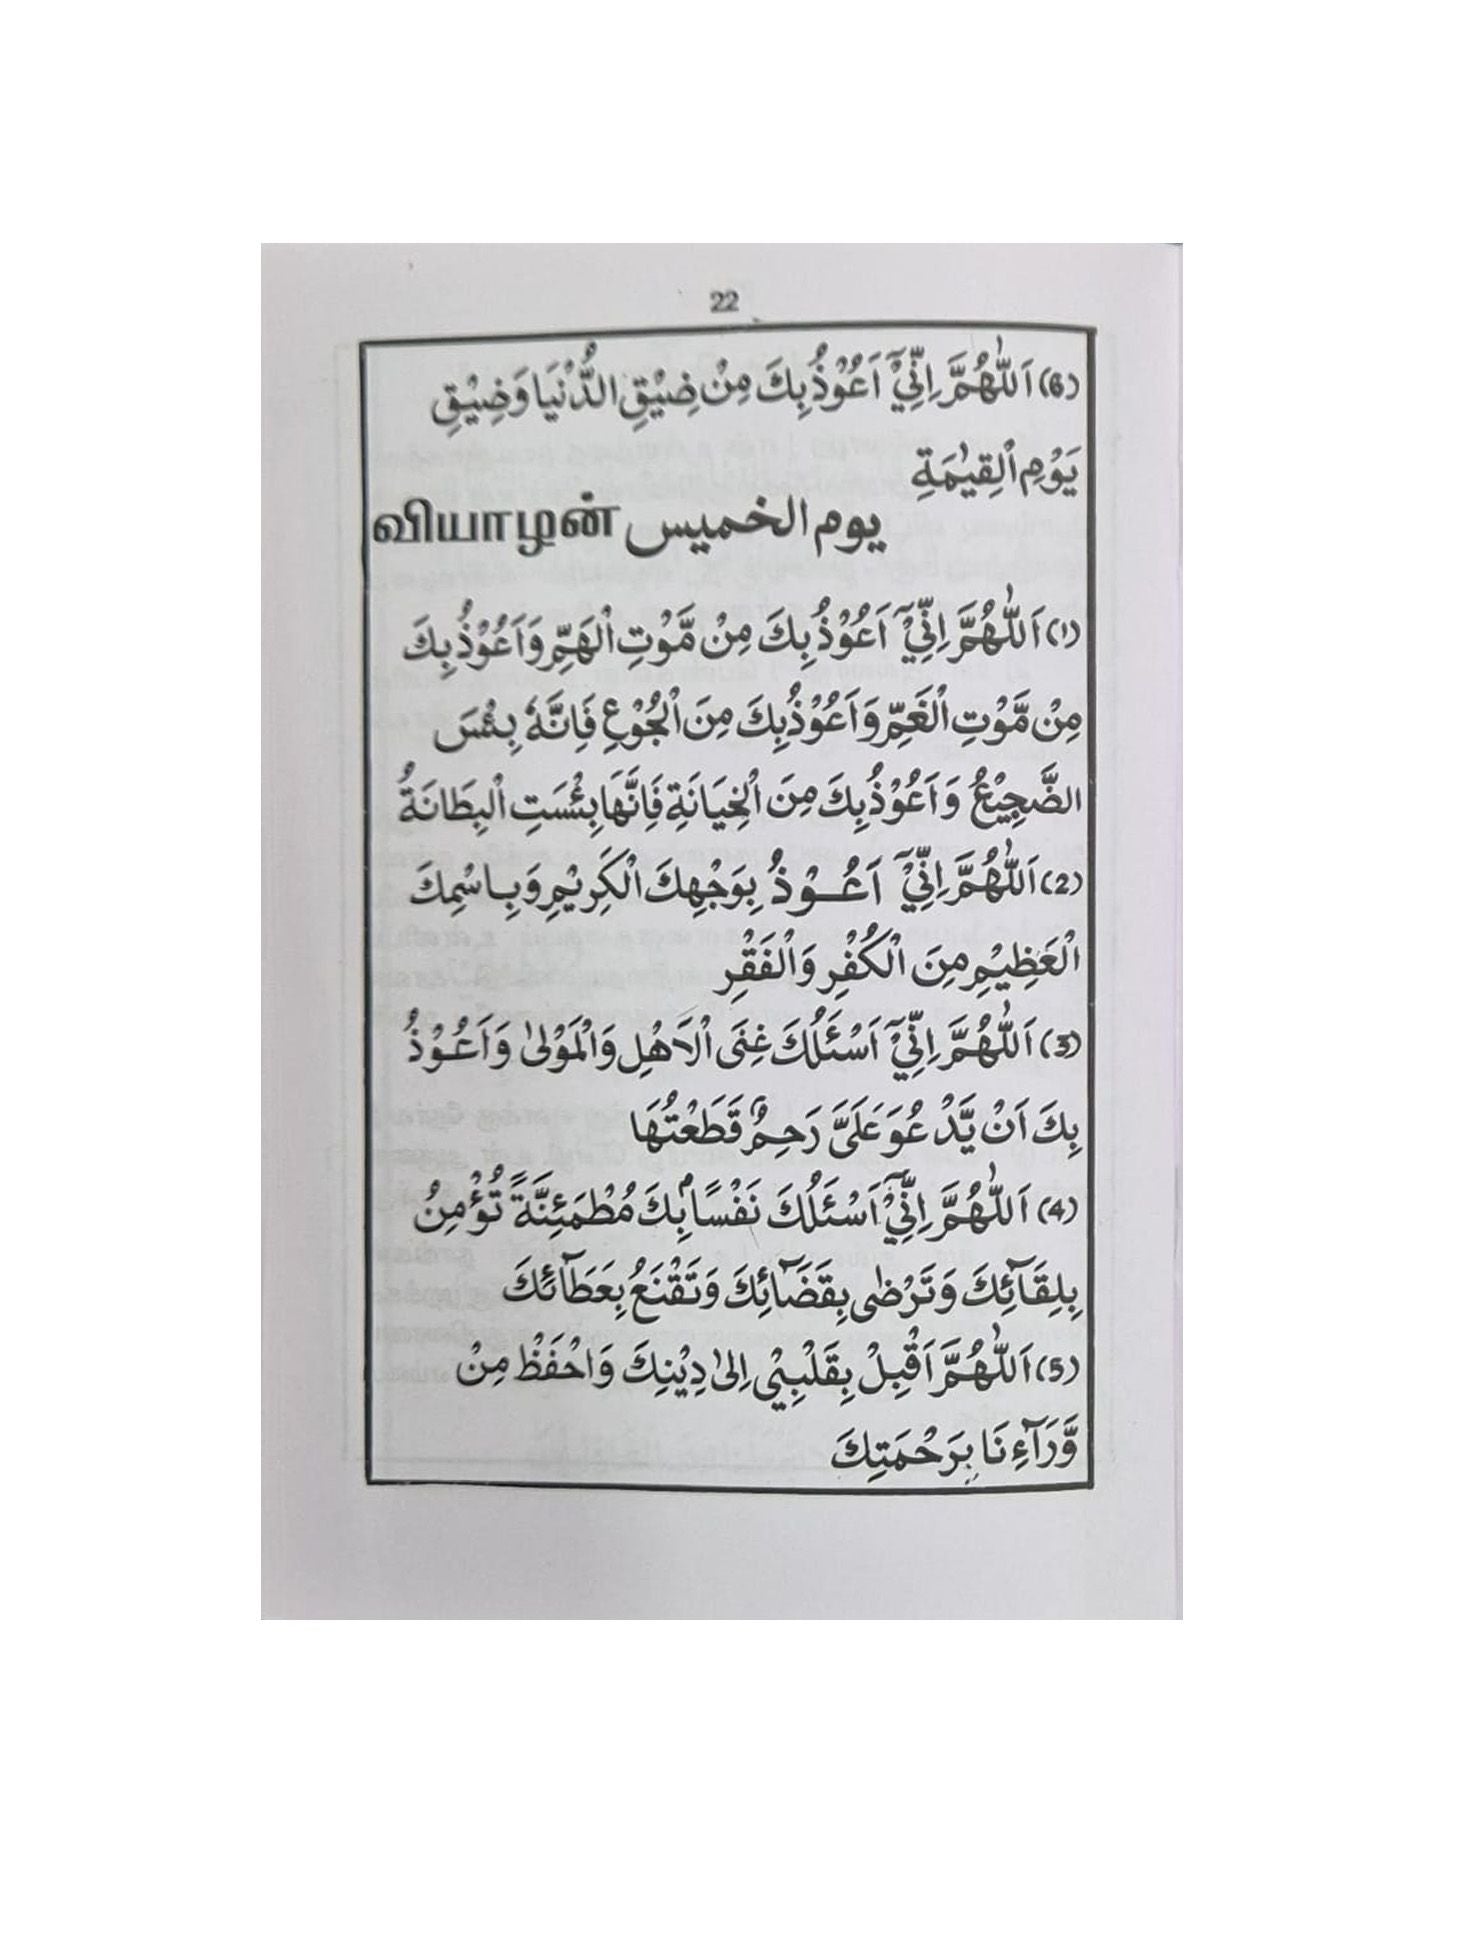 22
(6) اَللّٰهُمَّ اِنِّيْٓ اَعُوْذُ بِكَ مِنْ ضِيْقِ الدُّنْيَا وَضِيْقِ
يَوْمِ الْقِيٰمَةِ
يوم الخميس வியாழன்
(١) اَللّٰهُمَّ اِنِّيْٓ اَعُوْذُ بِكَ مِنْ مَّوْتِ الْهَمِّ وَاَعُوْذُ بِكَ
مِنْ مَّوْتِ الْغَمِّ وَاَعُوْذُ بِكَ مِنَ الْجُوْعِ فَاِنَّهٗ بِئْسَ
الضَّجِيْعُ وَاَعُوْذُ بِكَ مِنَ الْخِيَانَةِ فَاِنَّهَا بِئْسَتِ الْبِطَانَةُ
(2) اَللّٰهُمَّ اِنِّيْٓ اَعُـوْذُ بِوَجْهِكَ الْكَرِيْمِ وَبِاسْمِكَ
الْعَظِيْمِ مِنَ الْكُفْرِ وَالْفَقْرِ
(3) اَللّٰهُمَّ اِنِّيْٓ اَسْئَلُكَ غِنَى الْاَهْلِ وَالْمَوْلىٰ وَاَعُوْذُ
بِكَ اَنْ يَّدْعُوَ عَلَىَّ رَحِمٌ قَطَعْتُهَا
(4) اَللّٰهُمَّ اِنِّيْٓ اَسْئَلُكَ نَفْسًاۢ بِكَ مُطْمَئِنَّةً تُؤْمِنُ
بِلِقَآئِكَ وَتَرْضٰى بِقَضَآئِكَ وَتَقْنَعُ بِعَطَآئِكَ
(5) اَللّٰهُمَّ اَقْبِلْ بِقَلْبِيْ اِلىٰ دِيْنِكَ وَاحْفَظْ مِنْ
وَّرَآءِنَا بِرَحْمَتِكَ